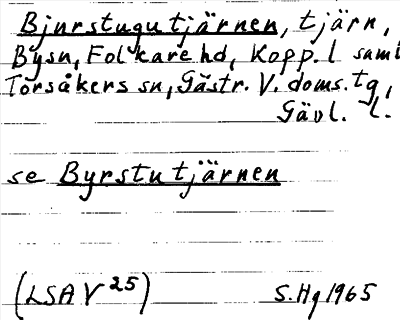 Bjurstugutjärnen, tjärn,
By sn, Folkare hd, Kopp. l samt
Torsåkers sn, Gästr. V. doms. tg,
Gävl. l.
se Byrstutjärnen
(LSA V 25)
S. Hg 1965